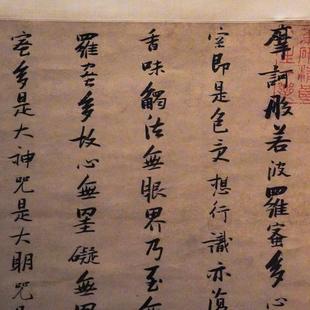 摩訶般若波羅蜜多心
空即是色受想行識亦復
香味觸法無眼界乃至無
羅蜜多故心無罣礙無罣
蜜多是大神咒是大明咒是